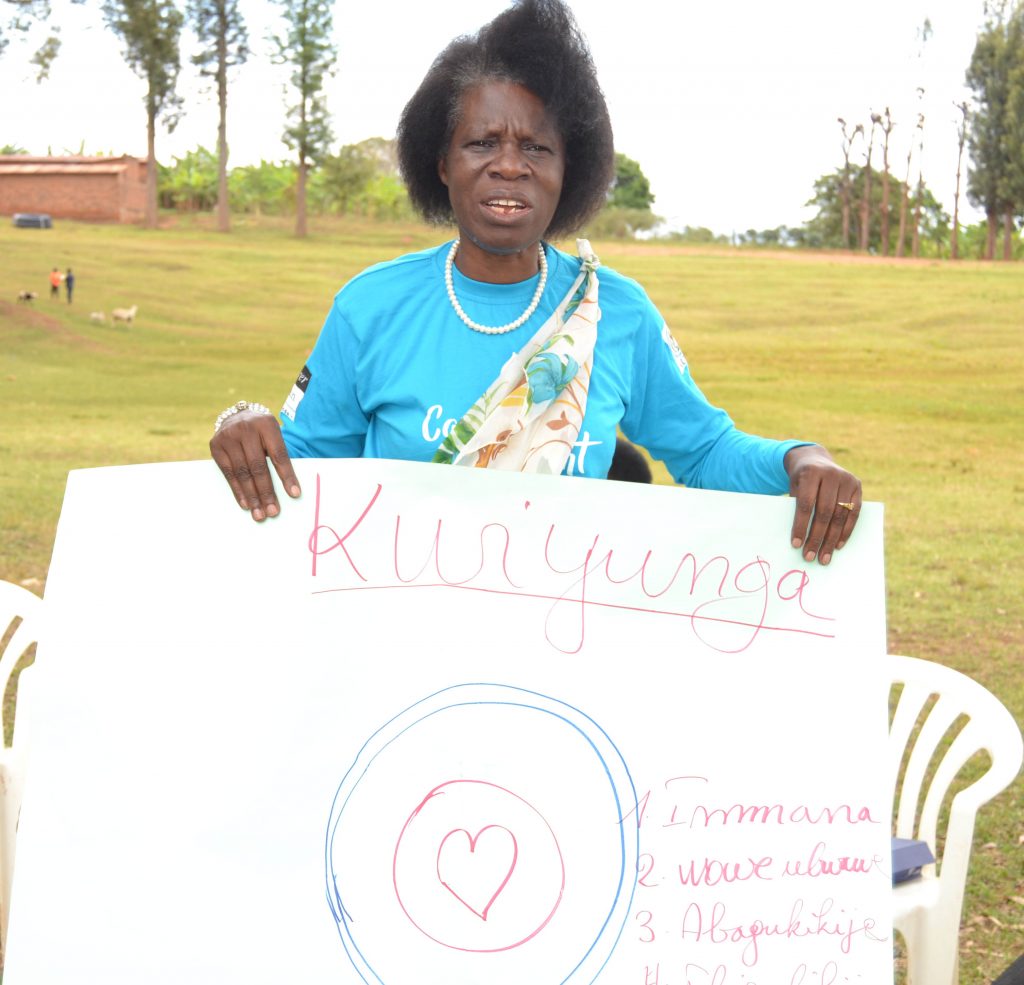 Kwiyunga
1. Immana
2. wowe ubwawe
3. Abagukikije